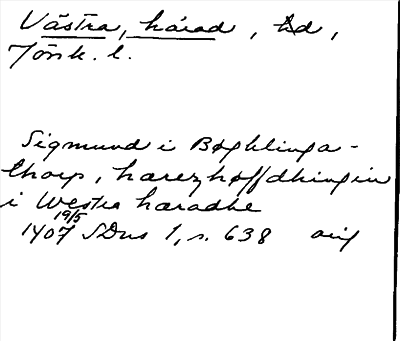 Västra, härad, hd,
Jönk. l.
Sigmund i Bøghlinga-
thorp, härezhøffdhingin
i Westra häradhe
19/5
1407 SDns 1, s. 638 orig